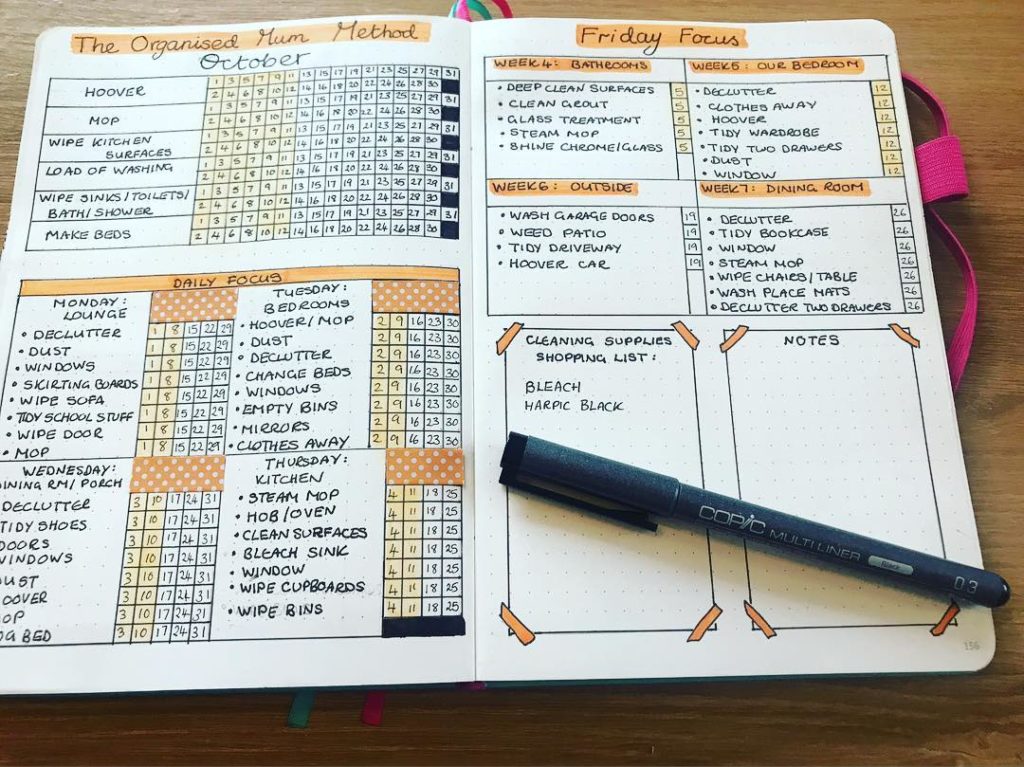 The Organised Mum Method
October
1 3 5 7 9 11 13 15 17 19 21 23 25 27 29 31
HOOVER
2 4 6 8 10 12 14 16 18 20 22 24 26 28 30
1 3 5 7 9 11 13 15 17 19 21 23 25 27 29 31
MOP
2 4 6 8 10 12 14 16 18 20 22 24 26 28 30
1 3 5 7 9 11 13 15 17 19 21 23 25 27 29 31
WIPE KITCHEN
SURFACES
2 4 6 8 10 12 14 16 18 20 22 24 26 28 30
1 3 5 7 9 11 13 15 17 19 21 23 25 27 29 31
LOAD OF WASHING
2 4 6 8 10 12 14 16 18 20 22 24 26 28 30
1 3 5 7 9 11 13 15 17 19 21 23 25 27 29 31
WIPE SINKS/TOILETS/
BATH/SHOWER
2 4 6 8 10 12 14 16 18 20 22 24 26 28 30
1 3 5 7 9 11 13 15 17 19 21 23 25 27 29 31
MAKE BEDS
2 4 6 8 10 12 14 16 18 20 22 24 26 28 30
DAILY FOCUS
MONDAY:
LOUNGE
• DECLUTTER 1 8 15 22 29
• DUST 1 8 15 22 29
• WINDOWS 1 8 15 22 29
• SKIRTING BOARDS 1 8 15 22 29
• WIPE SOFA 1 8 15 22 29
• TIDY SCHOOL STUFF 1 8 15 22 29
• WIPE DOOR 1 8 15 22 29
• MOP 1 8 15 22 29
TUESDAY:
BEDROOMS
• HOOVER/MOP 2 9 16 23 30
• DUST 2 9 16 23 30
• DECLUTTER 2 9 16 23 30
• CHANGE BEDS 2 9 16 23 30
• WINDOWS 2 9 16 23 30
• EMPTY BINS 2 9 16 23 30
• MIRRORS 2 9 16 23 30
• CLOTHES AWAY 2 9 16 23 30
WEDNESDAY:
DINING RM/PORCH
DECLUTTER 3 10 17 24 31
TIDY SHOES 3 10 17 24 31
DOORS 3 10 17 24 31
WINDOWS 3 10 17 24 31
DUST 3 10 17 24 31
HOOVER 3 10 17 24 31
MOP 3 10 17 24 31
BED 3 10 17 24 31
THURSDAY:
KITCHEN
• STEAM MOP 4 11 18 25
• HOB/OVEN 4 11 18 25
• CLEAN SURFACES 4 11 18 25
• BLEACH SINK 4 11 18 25
• WINDOW 4 11 18 25
• WIPE CUPBOARDS 4 11 18 25
• WIPE BINS 4 11 18 25
Friday Focus
WEEK 4: BATHROOMS
• DEEP CLEAN SURFACES 5
• CLEAN GROUT 5
• GLASS TREATMENT 5
• STEAM MOP 5
• SHINE CHROME/GLASS 5
WEEK 5: OUR BEDROOM
• DECLUTTER 12
• CLOTHES AWAY 12
• HOOVER 12
• TIDY WARDROBE 12
• TIDY TWO DRAWERS 12
• DUST 12
• WINDOW 12
WEEK 6: OUTSIDE
• WASH GARAGE DOORS 19
• WEED PATIO 19
• TIDY DRIVEWAY 19
• HOOVER CAR 19
WEEK 7: DINING ROOM
• DECLUTTER 26
• TIDY BOOKCASE 26
• WINDOW 26
• STEAM MOP 26
• WIPE CHAIRS/TABLE 26
• WASH PLACE MATS 26
• DECLUTTER TWO DRAWERS 26
CLEANING SUPPLIES
SHOPPING LIST:
BLEACH
HARPIC BLACK
NOTES
COPIC MULTILINER Black 0.3
156